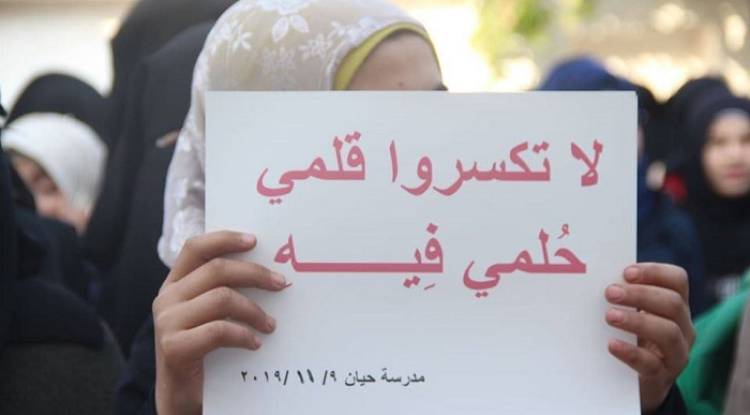 لا تكسروا قلمي
حُلمي فِيـــــــهِ
مدرسة حيان ٩/ ١١/ ٢٠١٩